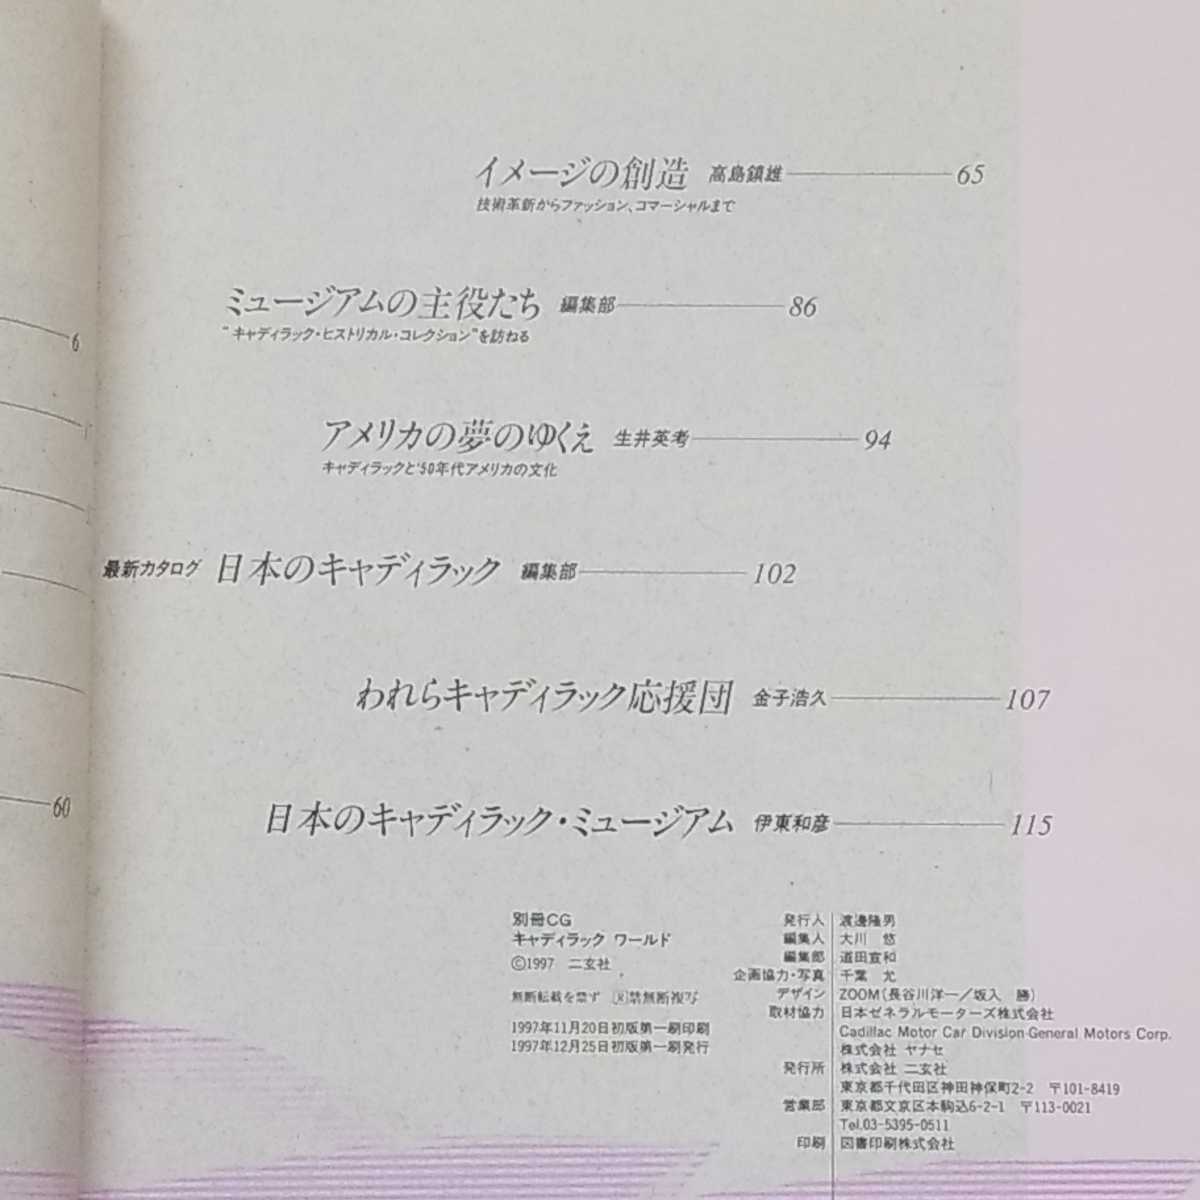 イメージの創造 高島鎮雄 65
技術革新からファッション、コマーシャルまで
ミュージアムの主役たち 編集部 86
“キャディラック・ヒストリカル・コレクション”を訪ねる
6
アメリカの夢のゆくえ 生井英考 94
キャディラックと'50年代アメリカの文化
最新カタログ 日本のキャディラック 編集部 102
われらキャディラック応援団 金子浩久 107
60
日本のキャディラック・ミュージアム 伊東和彦 115
別冊CG
キャディラック ワールド
©1997 二玄社
無断転載を禁ず Ⓡ禁無断複写
1997年11月20日初版第一刷印刷
1997年12月25日初版第一刷発行
発行人 渡邊隆男
編集人 大川 悠
編集部 道田宣和
企画協力・写真 千葉 尤
デザイン ZOOM(長谷川洋一/坂入 勝)
取材協力 日本ゼネラルモーターズ株式会社
Cadillac Motor Car Division-General Motors Corp.
株式会社 ヤナセ
発行所 株式会社 二玄社
東京都千代田区神田神保町2-2 〒101-8419
営業部 東京都文京区本駒込6-2-1 〒113-0021
Tel.03-5395-0511
印刷 図書印刷株式会社